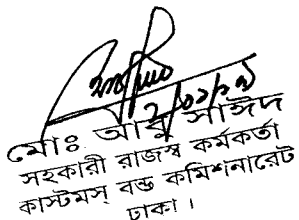 মোঃ আবু সাঈদ
সহকারী রাজস্ব কর্মকর্তা
কাস্টমস্ বন্ড কমিশনারেট
ঢাকা ।